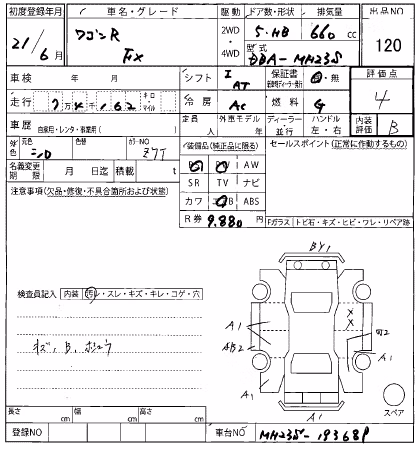 初度登録年月 車名・グレード 駆動 ドア数・形状 排気量 出品NO
21/6月 ワゴンR FX 2WD・4WD 5・HB 660 cc 120
型式 DBA-MH23S
車検 年 月 シフト I AT 保証書 有・無 評価点
走行 7万4千162 キロ・マイル 冷房 AC 燃料 G 4
車歴 自家用・レンタ・事業用( ) 定員 人 外車モデル 年 ディーラー・並行 ハンドル 左・右 内装評価 B
外色 元色 シロ 色替 カラーNO Z7T 装備品(純正品に限る) セールスポイント(正常に作動するもの)
名義変更期限 月 日迄 積載 t PS PW AW
SR TV ナビ
注意事項(欠品・修復・不具合箇所および状態) カワ ABS
R券 9,880 円 Fガラス トビ石・キズ・ヒビ・ワレ・リペア跡
BY1
検査員記入 内装 汚レ・スレ・キズ・キレ・コゲ・穴
A1 X X
AB2 A1
キズ、B、ホシュウ
A1 A1 スペア
長さ cm 幅 cm 高さ cm
登録NO 車台NO MH23S-193681